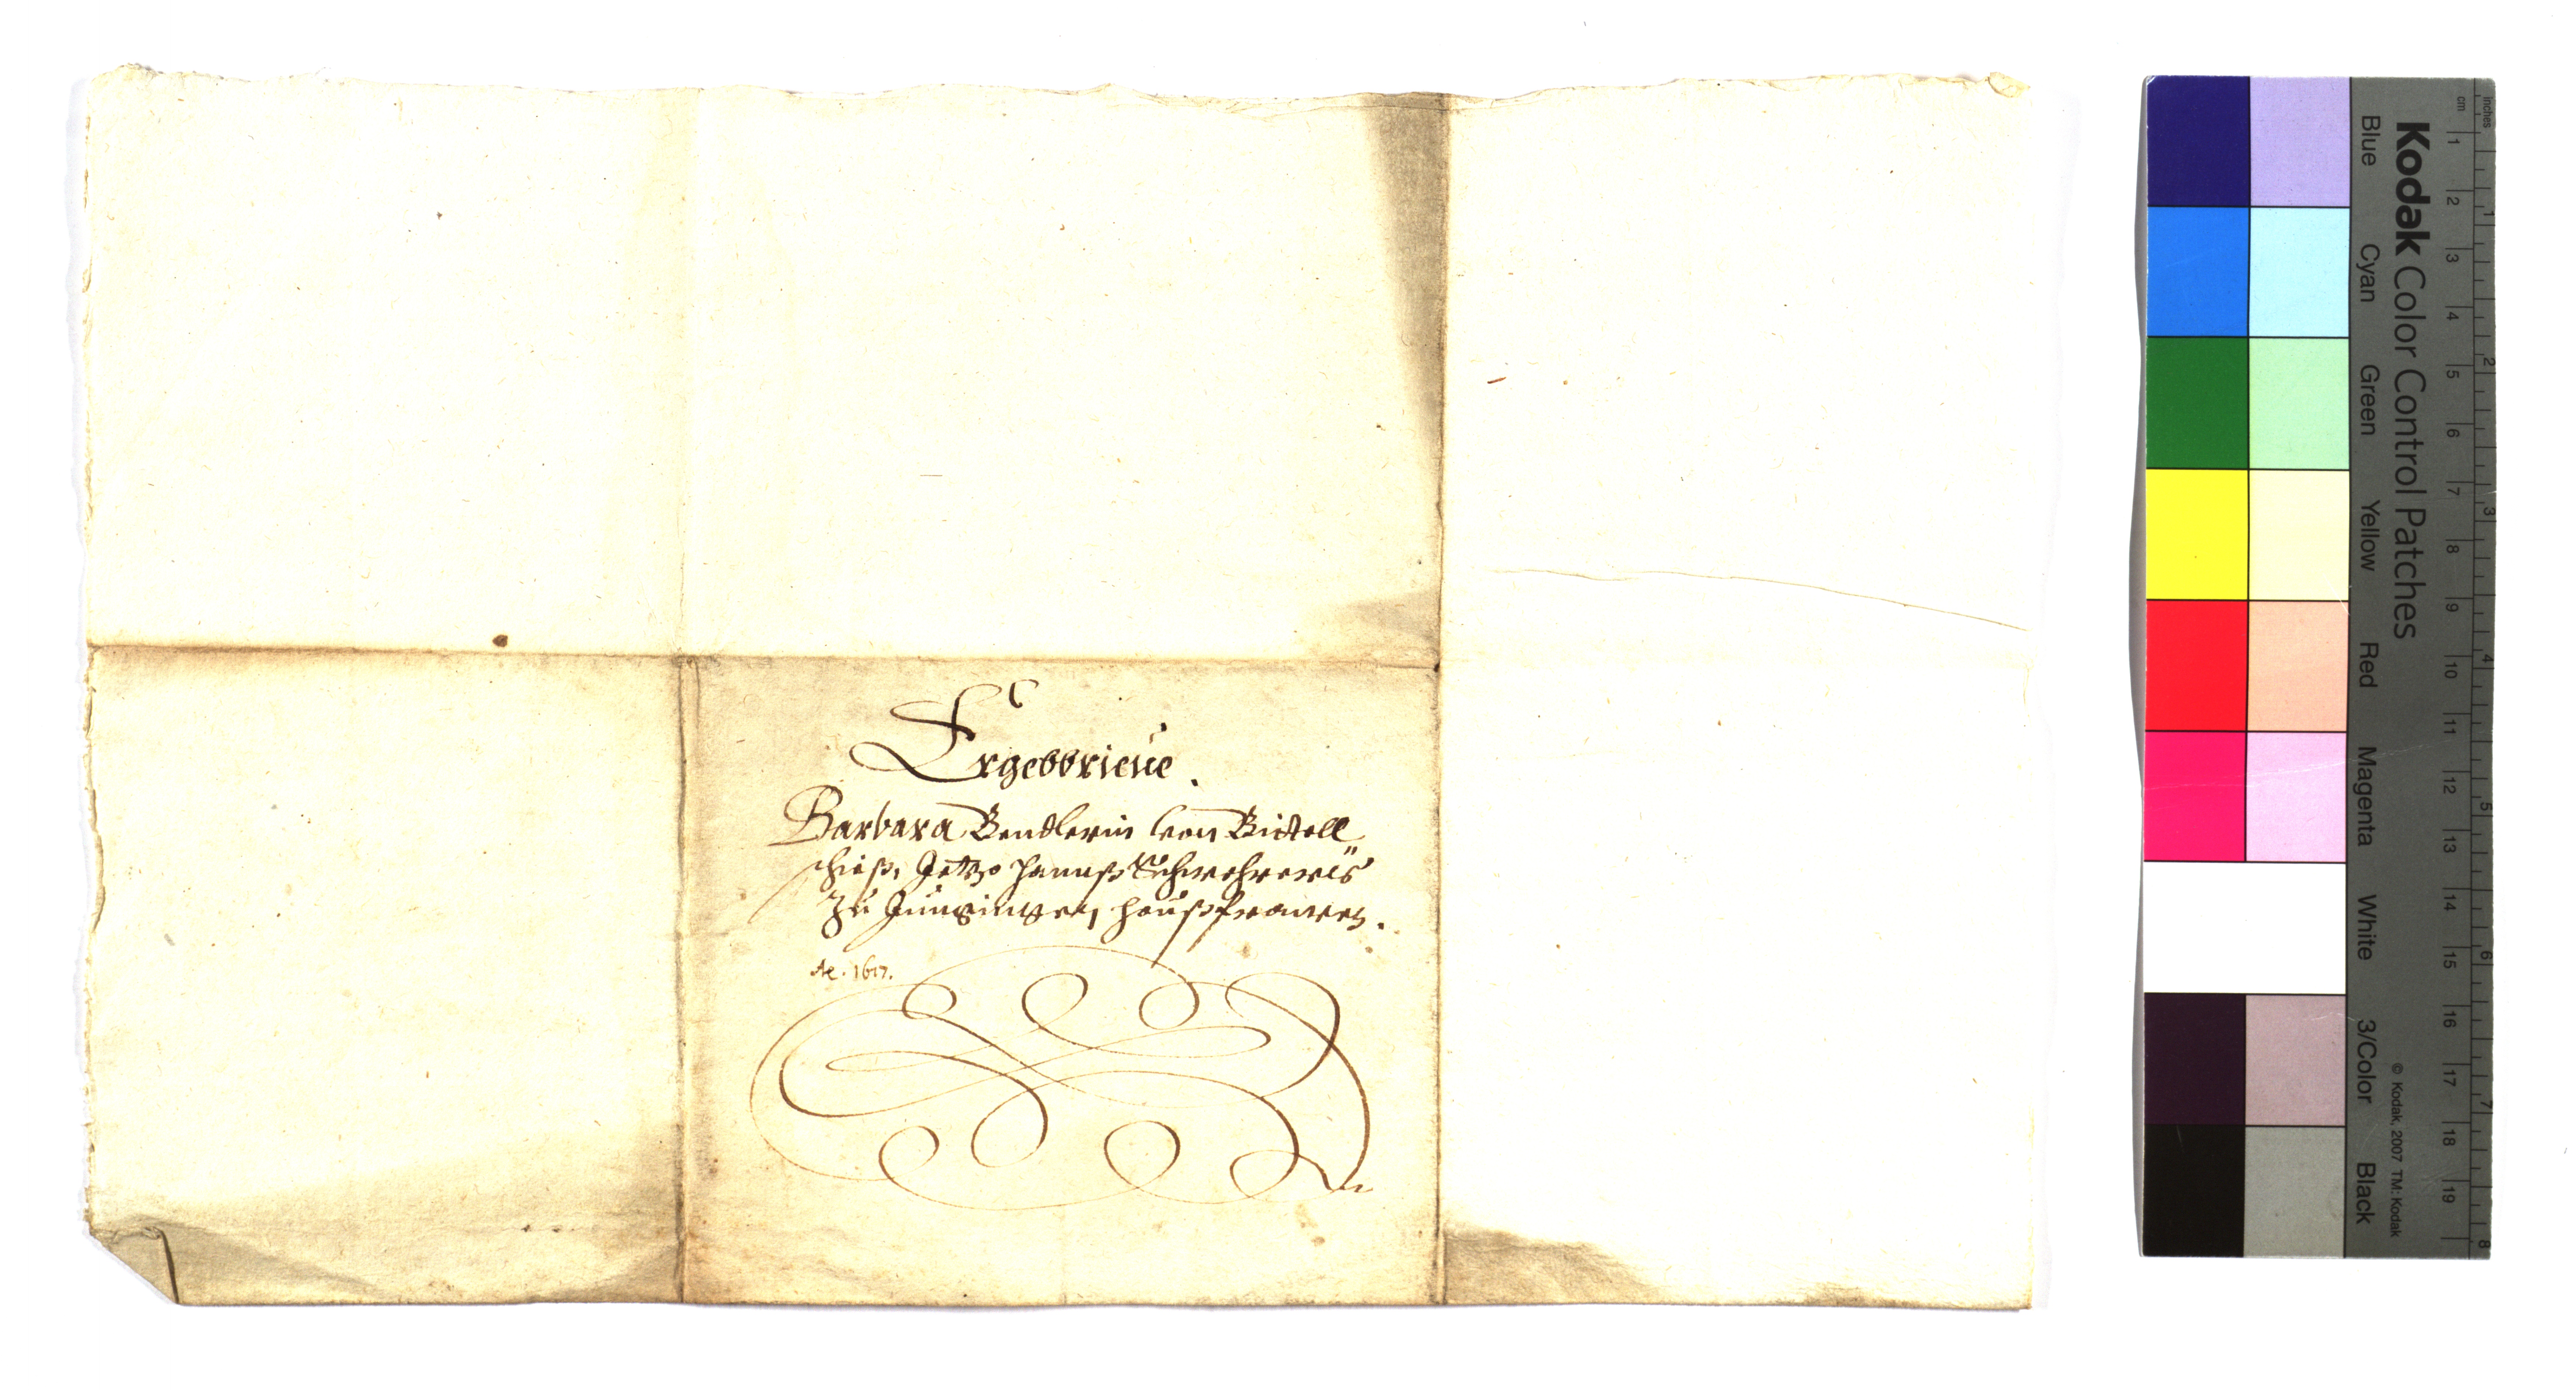 Ergebbrieue.
Barbara Bendlerin von Bittell
schieß, Jetzo Hannß Schwehrers
zu Jungingen, haußfrawen.
Ae. 1617.
Kodak Color Control Patches
Blue Cyan Green Yellow Red Magenta White 3/Color Black
© Kodak, 2007 TM: Kodak
cm 1 2 3 4 5 6 7 8 9 10 11 12 13 14 15 16 17 18 19
inches 1 2 3 4 5 6 7 8